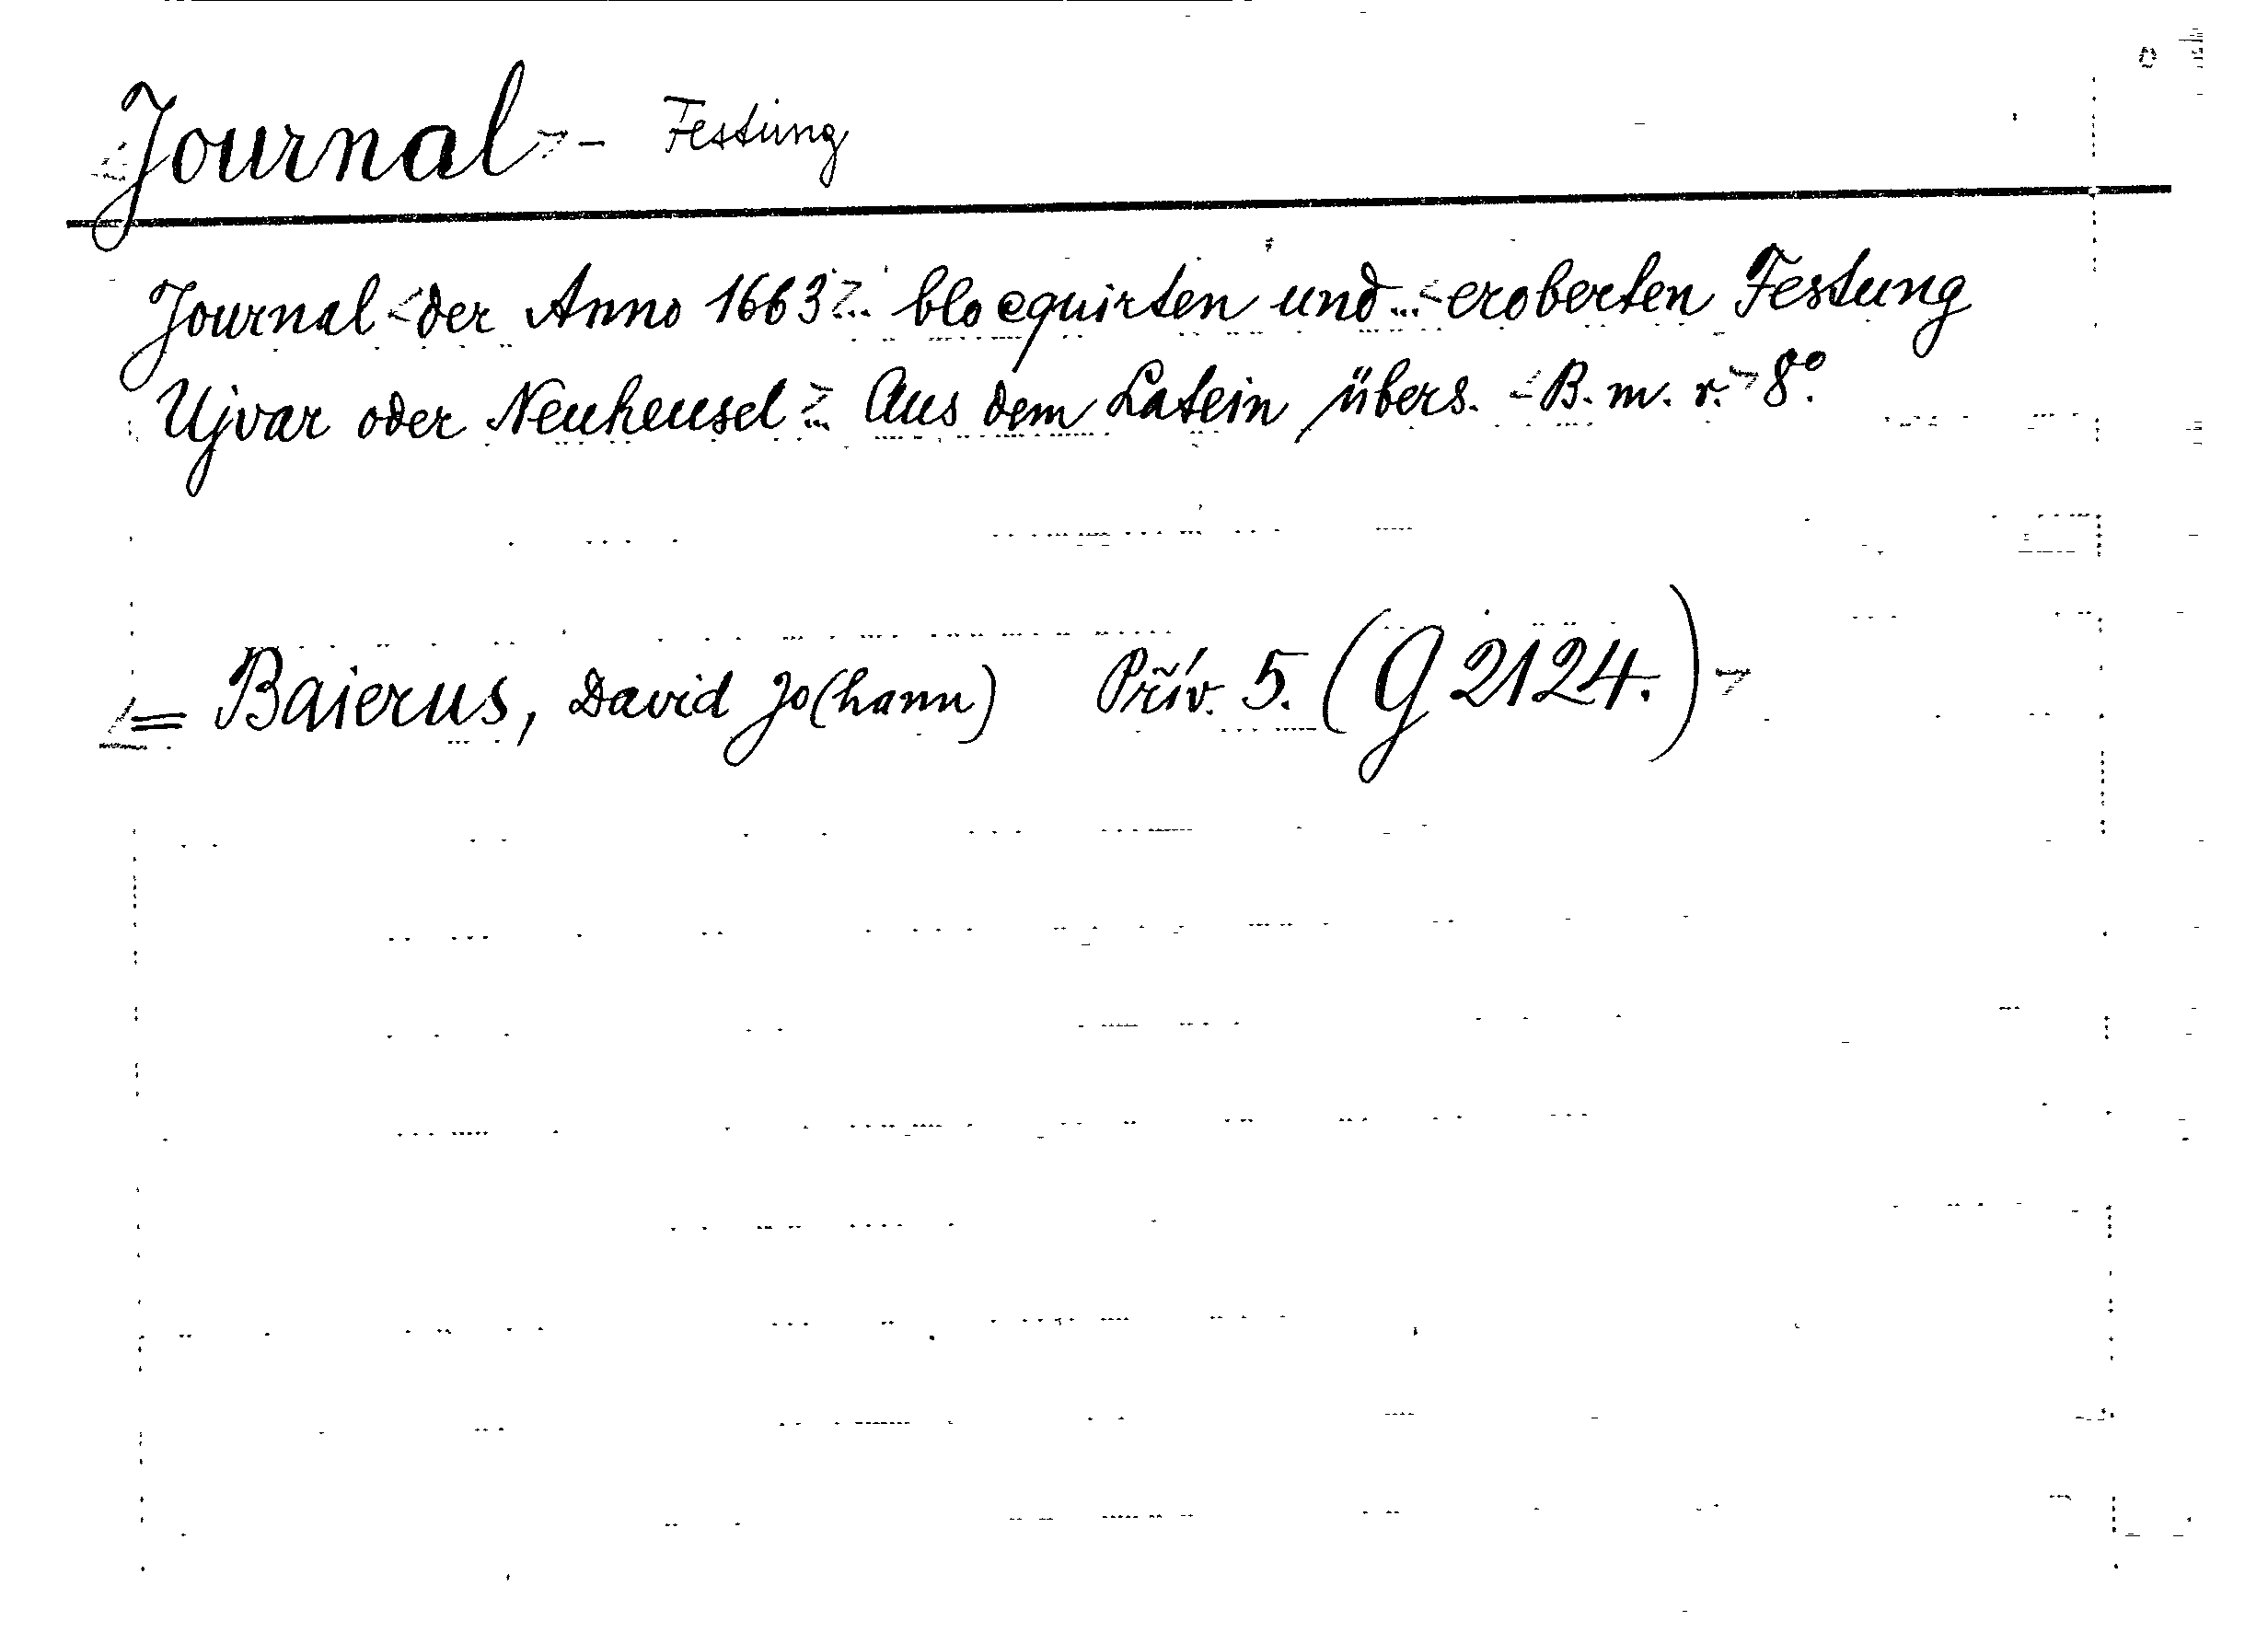 <Journal> - Festung
Journal <der Anno 1663>... blocquirten und ... <eroberten Festung
Ujvar oder Neuheusel>... Aus dem Latein übers. <B. m. r.> 8°.
<= Baierus, David Jo(hann) Přív. 5. (G 2124.)>